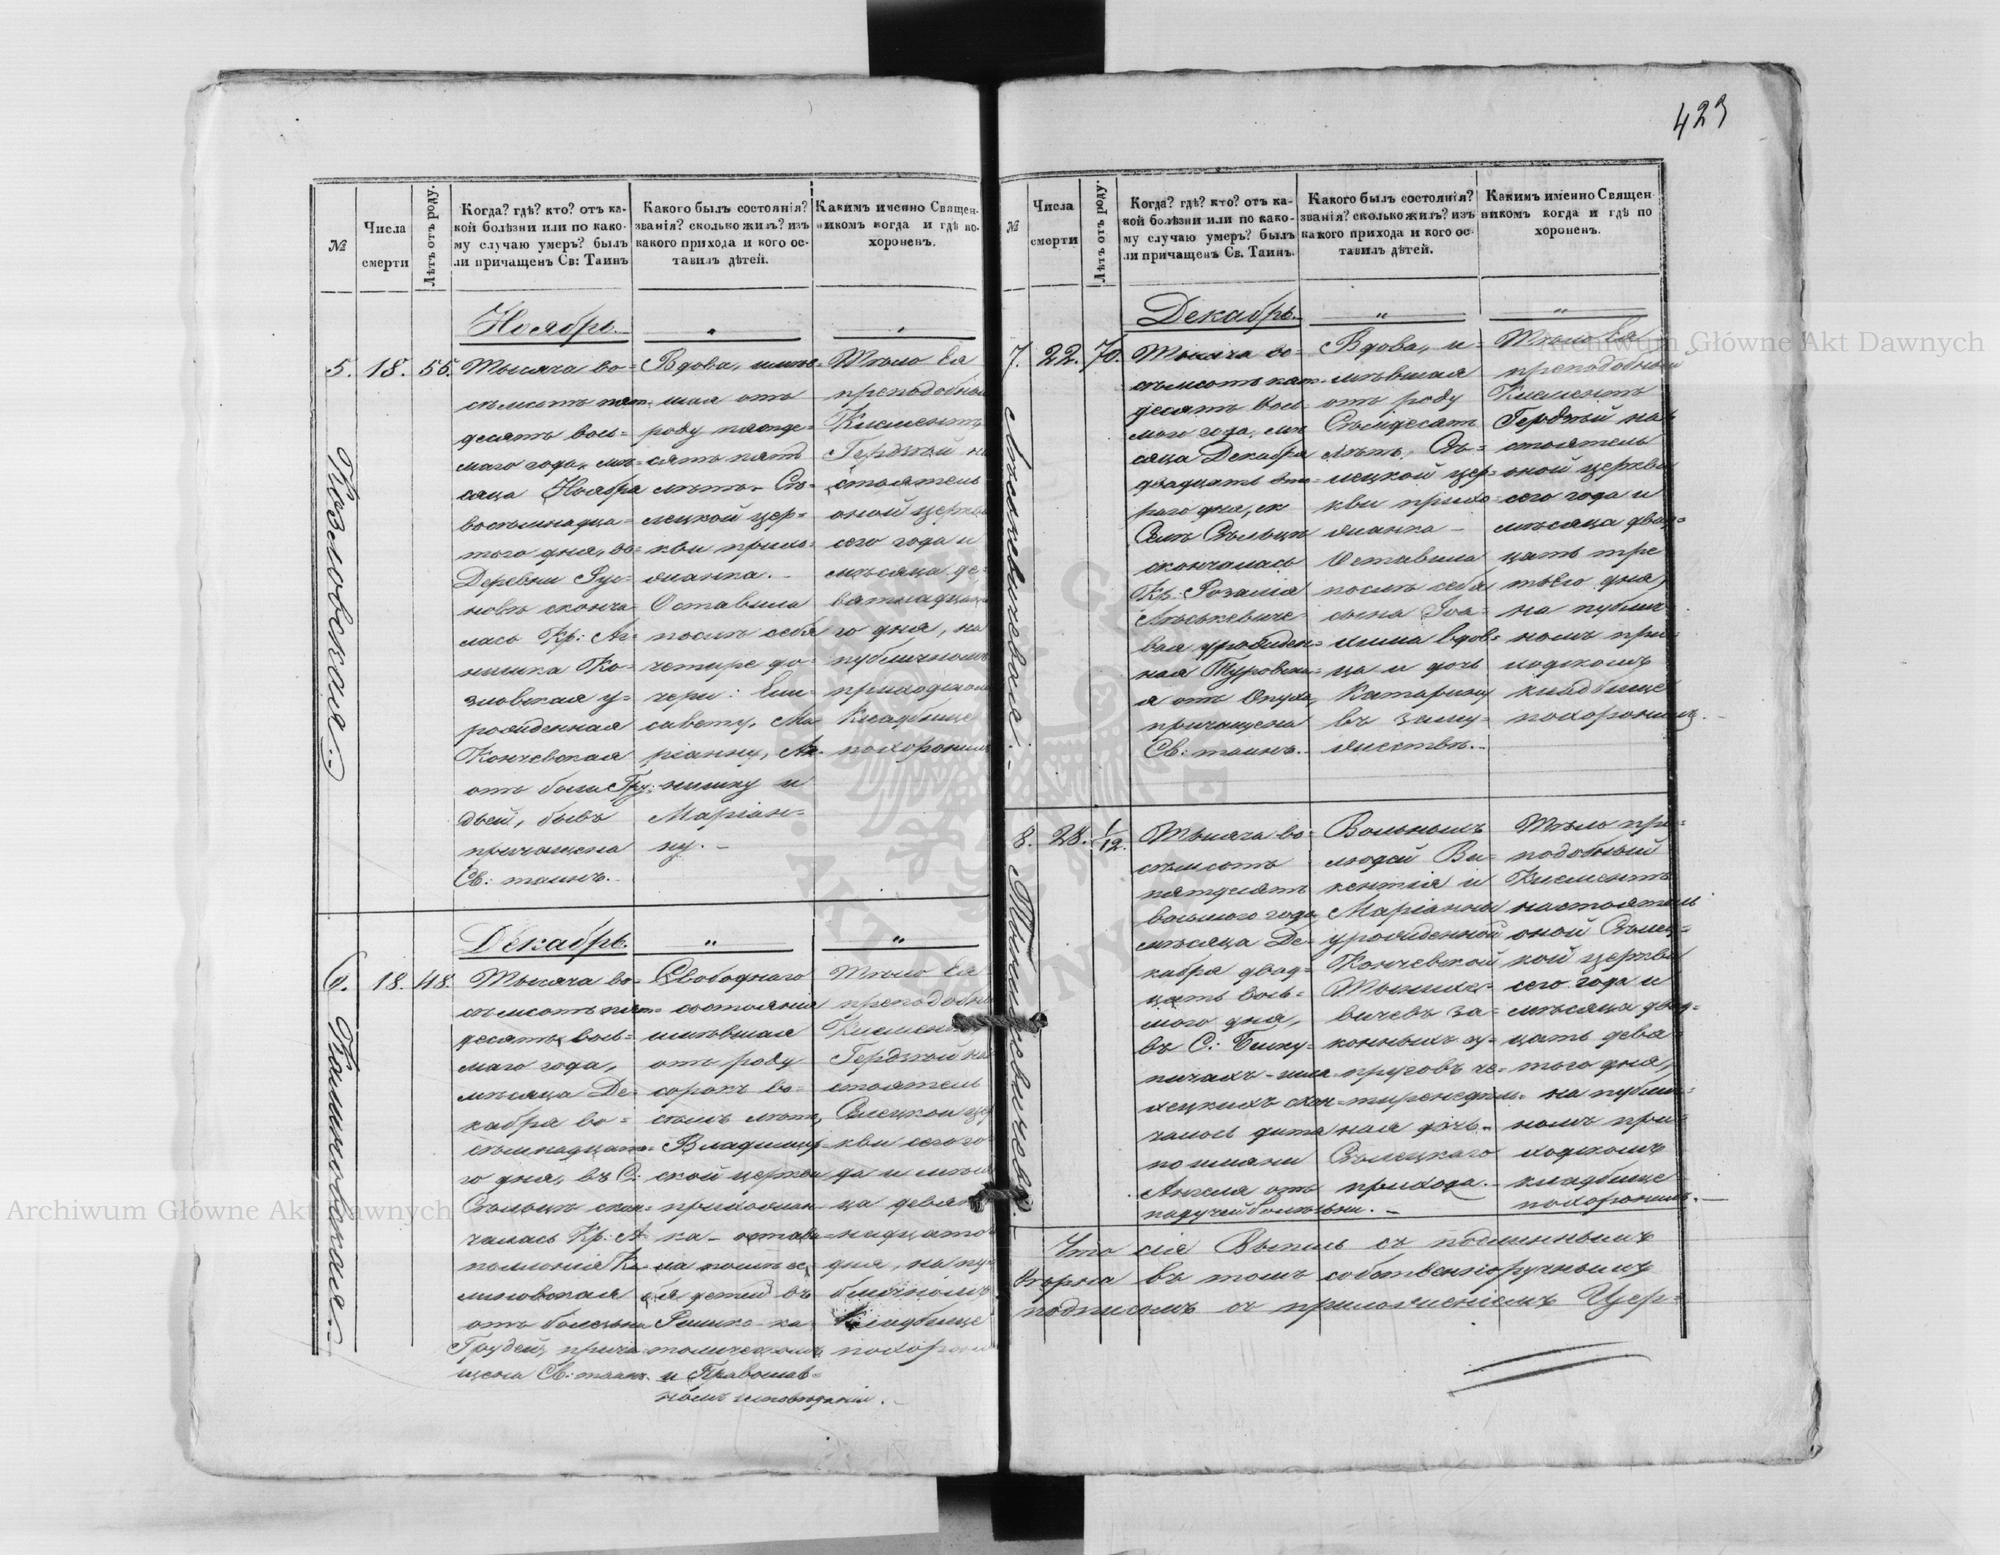 423
№
Числа смерти
Лѣтъ отъ роду.
Когда? гдѣ? кто? отъ ка-
кой болѣзни или по како-
му случаю умеръ? былъ
ли причащенъ Св: Таинъ
Какого былъ состоянія?
званія? сколько жилъ? изъ
какого прихода и кого ос-
тавилъ дѣтей.
Какимъ именно Священ-
никомъ когда и гдѣ по-
хороненъ.
Ноябрь.
5. 18. 56.
Козловская
Тысяча во-
съмсотъ пят-
десятъ вось-
маго года, мѣ-
сяца Ноября
восемнадца-
того дня, въ
Деревни Рус-
сконча-
лась Кр: Аг-
нишка Ко-
зловская у-
рожденная
Кончевская
отъ боли Гру-
дьей, бывъ
причащена
Св: таинъ.
Вдова, имѣв-
шая отъ
роду пятде-
сятъ пять
лѣтъ. Съ-
лецкой цер-
кви прихо-
жанка.
Оставила
послѣ себя
четыре до-
чери: Ели-
савету, Ма-
ріанну, Аг-
нишку и
Маріан-
ну.
Тѣло Ея
преподобный
Климентъ
Гердзѣй на-
стоятель
оной церкви
сего года и
мѣсяца де-
вятнадцата-
го дня, на
публичномъ
приходскомъ
Кладбище
похоронилъ
Декабрь.
6. 18. 48.
Калиновская
Тысяча во-
съмсотъ пят-
десятъ вось-
маго года,
мѣсяца Де-
кабря во-
съмнадцата-
го дня, въ С:
Съльцѣ скон-
чалась Кр: А-
полонія Ка-
линовская
отъ болезьни
Грудей, прича-
щена Св: таинъ.
Свободнаго
состоянія
имѣвшая
отъ роду
сорокъ во-
съмь лѣтъ,
Владимир-
ской церкви
прихожан-
ка - остави-
ла послѣ се-
бя детей въ
Римско-ка-
толическомъ
и Православ-
номъ исповѣданіи.
Тѣло Ея
преподобный
Климентъ
Гердзѣй на-
стоятель
Селецкой цер-
кви сего го-
да и мѣся-
ца девят-
надцато
дня, на пу-
бличномъ
Кладбище
похоронилъ
№
Числа смерти
Лѣтъ отъ роду.
Когда? гдѣ? кто? отъ ка-
кой болѣзни или по како-
му случаю умеръ? былъ
ли причащенъ Св. Таинъ.
Какого былъ состоянія?
званія? сколько жилъ? изъ
какого прихода и кого ос-
тавилъ дѣтей.
Какимъ именно Священ-
никомъ когда и гдѣ по
хороненъ.
Декабрь.
7. 22. 70.
Лисъкевичевая
Тысяча во-
съмсотъ пят-
десятъ вось-
маго года, мѣ-
сяца Декабря
двадцатъ вто-
раго дня, въ
Селѣ Съльцѣ
скончалась
Кр: Розалія
Лисъкевиче-
вая урожден-
ная Туровска-
я отъ Опуха,
причащена
Св: таинъ.
Вдова, и-
мѣвшая
отъ роду
Съмдесятъ
лѣтъ, Съ-
лецкой цер-
кви прихо-
жанка -
Оставила
послѣ себя
сына Іоа-
хима вдов-
ца и дочь
Катарину
въ заму-
жествѣ.
Тѣло Ея
преподобный
Климентъ
Гердзѣй на-
стоятель
оной церкви
сего года и
мѣсяца двад-
цать тре
тьяго дня,
на публич-
номъ при-
ходскомъ
кладбище
похоронилъ.
8. 28. 1/12.
Тысяча во-
съмсотъ
пятдесятъ
восьмого года
мѣсяца Де-
кабря двад-
цать вось-
мого дня,
въ С: Бику-
пичахъ-шля-
хецкихъ скон-
чалось дитя
по имяни
Ангеля отъ
падучей болѣзьни.
Вольныхъ
людей Ви-
кентія и
Маріанны
урожденной
Кончевской
вичевъ за-
конныхъ су-
пруговъ че-
тиренедѣль-
ная дочь.
Съльецкаго
прихода.
Тѣло пре-
подобный
Климентъ
настоятель
оной Сълец-
кой церкви
сего года и
мѣсяца двад-
цать дева-
того дня,
на публич-
номъ при-
ходскомъ
кладбище
похоронилъ.
Что сія Выпись съ подлиннымъ
вѣрна въ томъ собственноручнымъ
подписомъ съ приложеніемъ Цер-
Archiwum Główne Akt Dawnych
Archiwum Główne Akt Dawnych